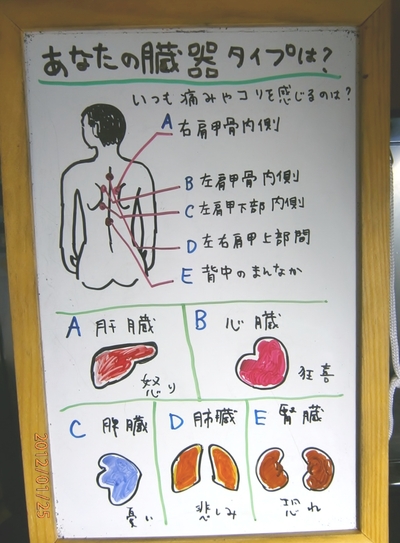 あなたの臓器タイプは?
いつも痛みやコリを感じるのは?
A 右肩甲骨内側
B 左肩甲骨内側
C 左肩甲下部内側
D 左右肩甲上部間
E 背中のまんなか
A 肝臓
怒り
B 心臓
狂喜
C 脾臓
憂い
D 肺臓
悲しみ
E 腎臓
恐れ
2012/01/25